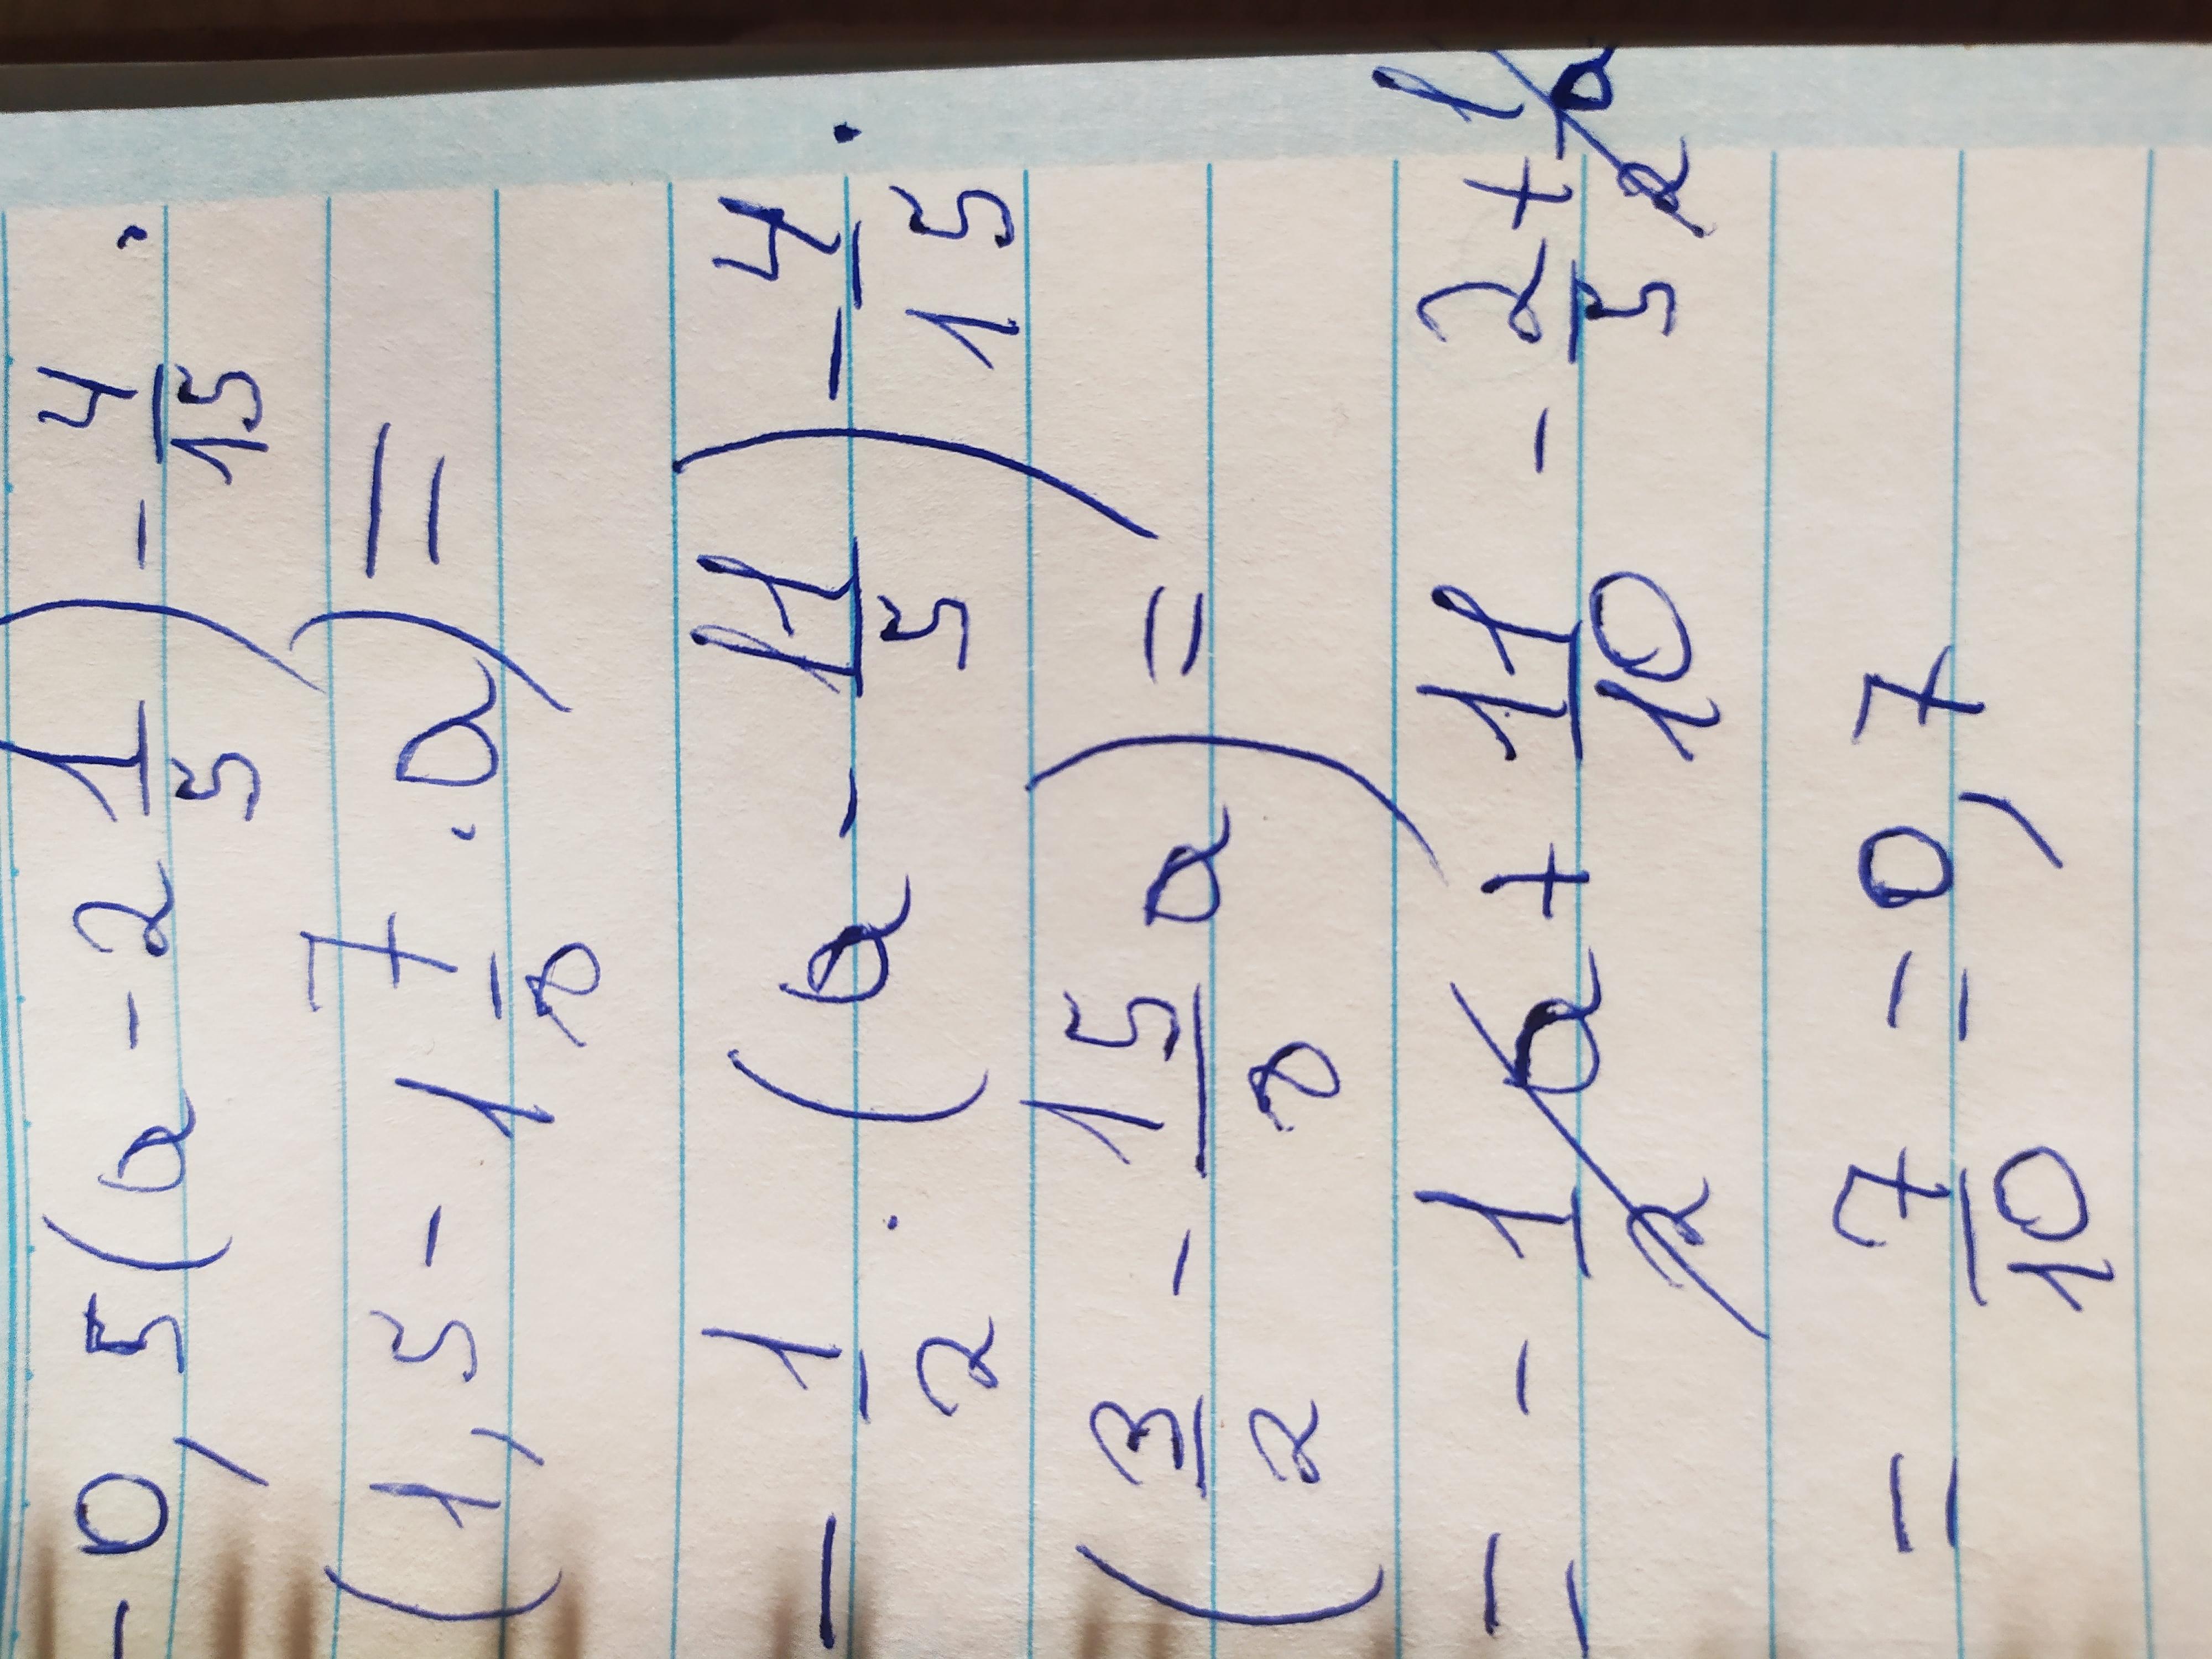 - 0,5(a - 2 1/5) - 4/15 ·
(1,5 - 1 7/8 · a) =
- 1/2 · (a - 11/5) - 4/15 ·
(3/2 - 15/8 a) =
= - 1/2 a + 11/10 - 2/5 + 1/2 a
= 7/10 = 0,7